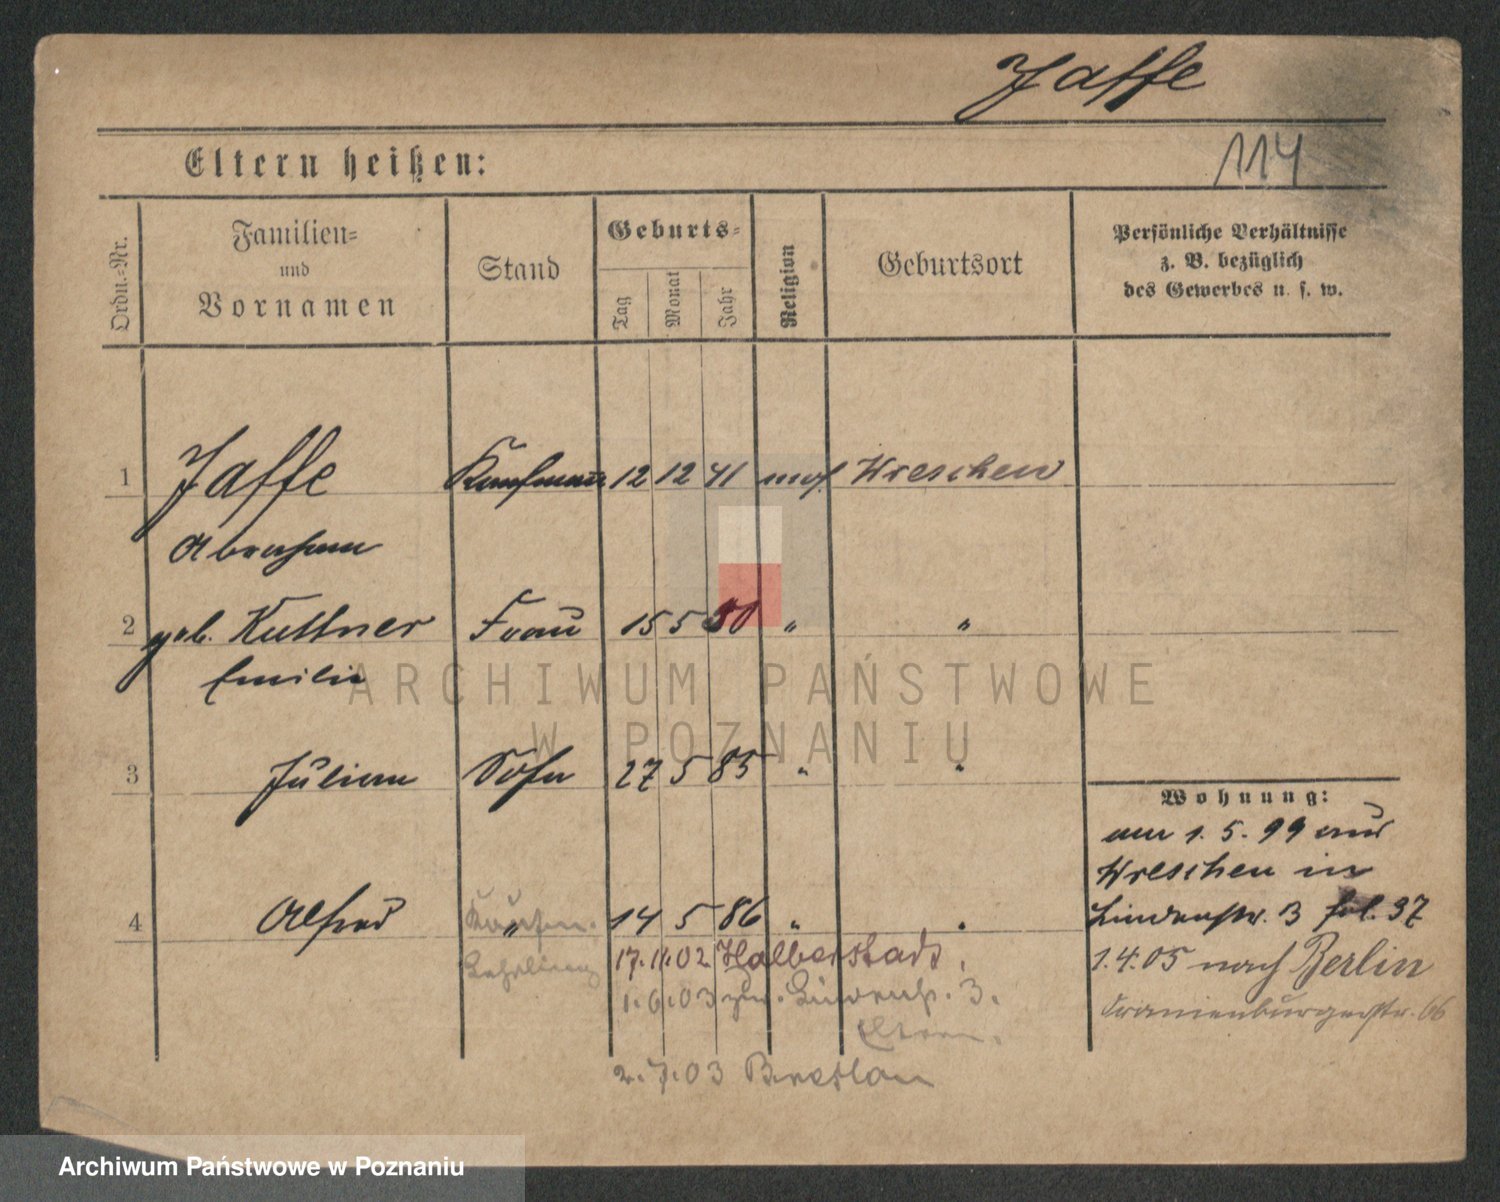 Jaffe
Eltern heißen:
114
Ordn.=Nr.
Familien=
und
Vornamen
Stand
Geburts=
Tag
Monat
Jahr
Religion
Geburtsort
Persönliche Verhältnisse
z. B. bezüglich
des Gewerbes u. s. w.
1 Jaffe Kaufmann 12 12 41 mos. Wreschen
Abraham
2 geb. Kuttner Frau 15 5 50 " "
Emilie
3 Julian Sohn 27 5 85 " "
4 Alfred " 14 5 86 " "
Kaufm.
Lehrling
17.11.02 Halberstadt.
1.6.03 Lindenstr. 3.
Eltern.
2.7.03 Breslau
Wohnung:
am 1. 5. 99 aus
Wreschen in
Lindenstr. 3 fol. 37
1.4.05 nach Berlin
Oranienburgerstr. 66
ARCHIWUM PAŃSTWOWE
W POZNANIU
Archiwum Państwowe w Poznaniu